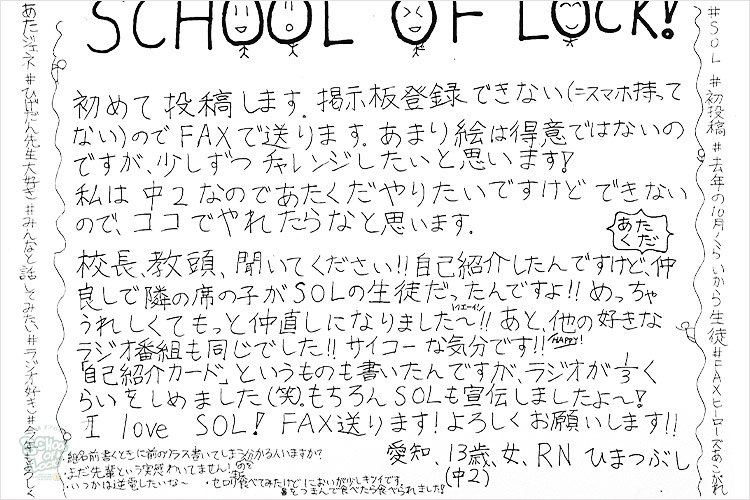 SCHOOL OF LOCK!
初めて投稿します。掲示板登録できない(=スマホ持って
ない)のでFAXで送ります。あまり絵は得意ではないの
ですが、少しずつチャレンジしたいと思います!
私は中2なのであたくだやりたいですけどできない
ので、ココでやれたらなと思います。
あた
くだ
校長、教頭、聞いてください!!自己紹介したんですけど、仲
良しで隣の席の子がSOLの生徒だったんですよ!!めっちゃ
うれしくてもっと仲直しになりました〜!!あと、他の好きな
ラジオ番組も同じでした!!サイコーな気分です!!
HAPPY!
「自己紹介カード」というものも書いたんですが、ラジオが1/3く
らいをしめました(笑)。もちろんSOLも宣伝しましたよ〜!
I love SOL! FAX送ります!よろしくお願いします!!
愛知、13歳、女、RN ひまつぶし
(中2)
・組名前書くときに前のクラス書いてしまうの分かる人いますか?
・まだ先輩という実感わいてません!
・いつかは逆電したいな〜
・セロリ食べてみたけどにおいが少しキツイです。
鼻をつまんで食べたら食べられました!
あたジェネ#ひげだん先生大好き#みんなと話してみたい#ラジオ好き#今年もよろしく
#SOL #初投稿 #去年の10月くらいから生徒 #FAXヒーローズあこがれ